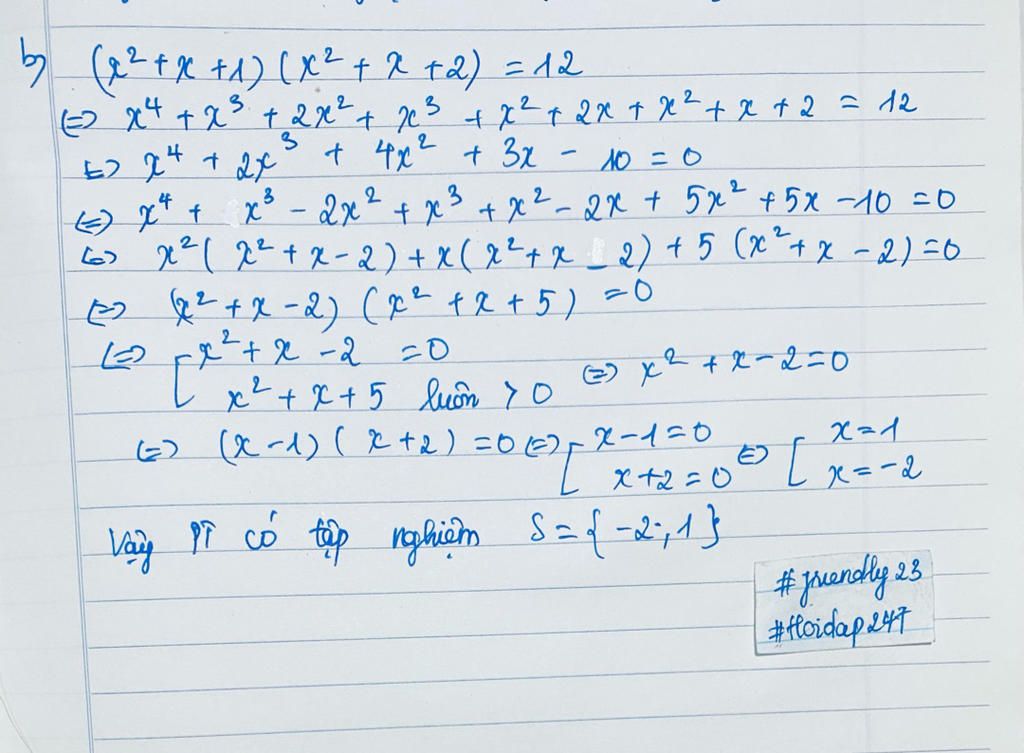 b) (x² + x + 1) (x² + x + 2) = 12
⇔ x⁴ + x³ + 2x² + x³ + x² + 2x + x² + x + 2 = 12
⇔ x⁴ + 2x³ + 4x² + 3x - 10 = 0
⇔ x⁴ + x³ - 2x² + x³ + x² - 2x + 5x² + 5x - 10 = 0
⇔ x² ( x² + x - 2) + x ( x² + x - 2) + 5 (x² + x - 2) = 0
⇔ (x² + x - 2) (x² + x + 5) = 0
⇔ [ x² + x - 2 = 0
x² + x + 5 luôn > 0 ⇔ x² + x - 2 = 0
⇔ (x - 1) ( x + 2) = 0 ⇔ [ x - 1 = 0 ⇔ [ x = 1
x + 2 = 0 x = -2
Vậy PT có tập nghiệm S = { -2 ; 1 }
# friendly 23
#Hoidap247